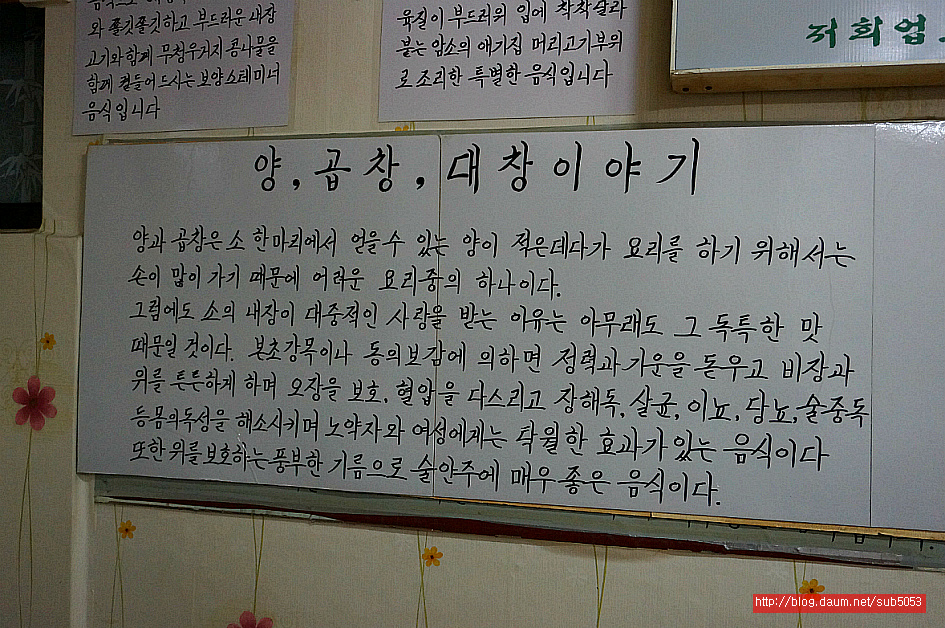 와 쫄깃쫄깃하고 부드러운 내장
고기와 함께 무청우거지 콩나물을
함께 곁들어 드시는 보양스테미너
음식입니다
육질이 부드러워 입에 착착살라
붙는 암소의 애기집 머리고기부위
로 조리한 특별한 음식입니다
저희업
양, 곱창, 대창이야기
양과 곱창은 소 한마리에서 얻을수 있는 양이 적은데다가 요리를 하기 위해서는
손이 많이 가기 때문에 어려운 요리중의 하나이다.
그럼에도 소의 내장이 대중적인 사랑을 받는 이유는 아무래도 그 독특한 맛
때문일 것이다. 본초강목이나 동의보감에 의하면 정력과 기운을 돋우고 비장과
위를 튼튼하게 하며 오장을 보호, 혈압을 다스리고 장해독, 살균, 이뇨, 당뇨, 술중독
등몸의독성을 해소시키며 노약자와 여성에게는 탁월한 효과가 있는 음식이다
또한 위를 보호하는 풍부한 기름으로 술안주에 매우 좋은 음식이다.
http://blog.daum.net/sub5053